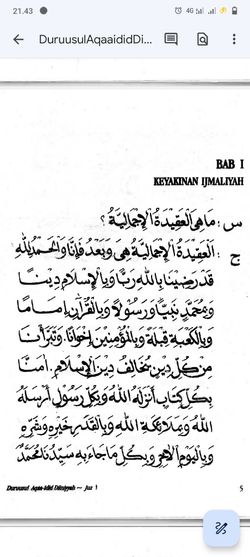 21.43
4G
DuruusulAqaaididDi...
BAB I
KEYAKINAN IJMALIYAH
س : مَاهِيَ الْعَقِيْدَةُ الْإِجْمَالِيَّةُ ؟
ج : الْعَقِيْدَةُ الْإِجْمَالِيَّةُ هِيَ وَبَعْدُ فَإِنَّا وَالْحَمْدُ لِلّٰهِ
قَدْ رَضِيْنَا بِاللهِ رَبًّا وَبِالْإِسْلَامِ دِيْنًا
وَبِمُحَمَّدٍ نَبِيًّا وَرَسُوْلًا وَبِالْقُرْآنِ إِمَامًا
وَبِالْكَعْبَةِ قِبْلَةً وَبِالْمُؤْمِنِيْنَ إِخْوَانًا. وَتَبَرَّأْنَا
مِنْ كُلِّ دِيْنٍ يُخَالِفُ دِيْنَ الْإِسْلَامِ. آمَنَّا
بِكُلِّ كِتَابٍ أَنْزَلَهُ اللهُ وَبِكُلِّ رَسُوْلٍ أَرْسَلَهُ
اللهُ وَبِمَلَائِكَةِ اللهِ وَبِالْقَدَرِ خَيْرِهِ وَشَرِّهِ
وَبِالْيَوْمِ الْآخِرِ وَبِكُلِّ مَاجَاءَ بِهِ سَيِّدُنَا مُحَمَّدٌ
Duruusul Aqaa-idid Diiniyyah — Juz 1
5